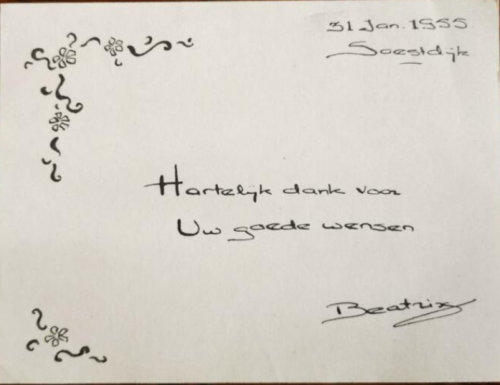 31 Jan. 1955
Soestdijk
Hartelijk dank voor
Uw goede wensen
Beatrix